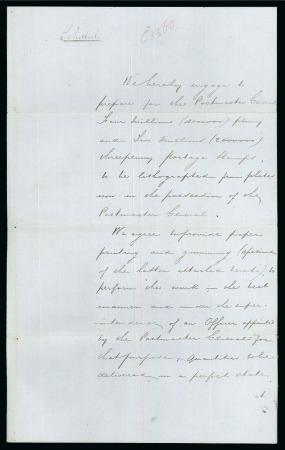 Schedule
We hereby engage to
prepare for the Postmaster General
Four Millions (4000000) penny
and Two Millions (2000000)
threepenny Postage Stamps.
to be lithographed from plates
now in the possession of the
Postmaster General.
We agree to provide paper
printing and gumming (specimen
of the latter attached hereto), to
perform the work in the best
manner and under the super-
intendence of an Officer appointed
by the Postmaster General for
that purpose. Quantities to be
delivered in a perfect state
at